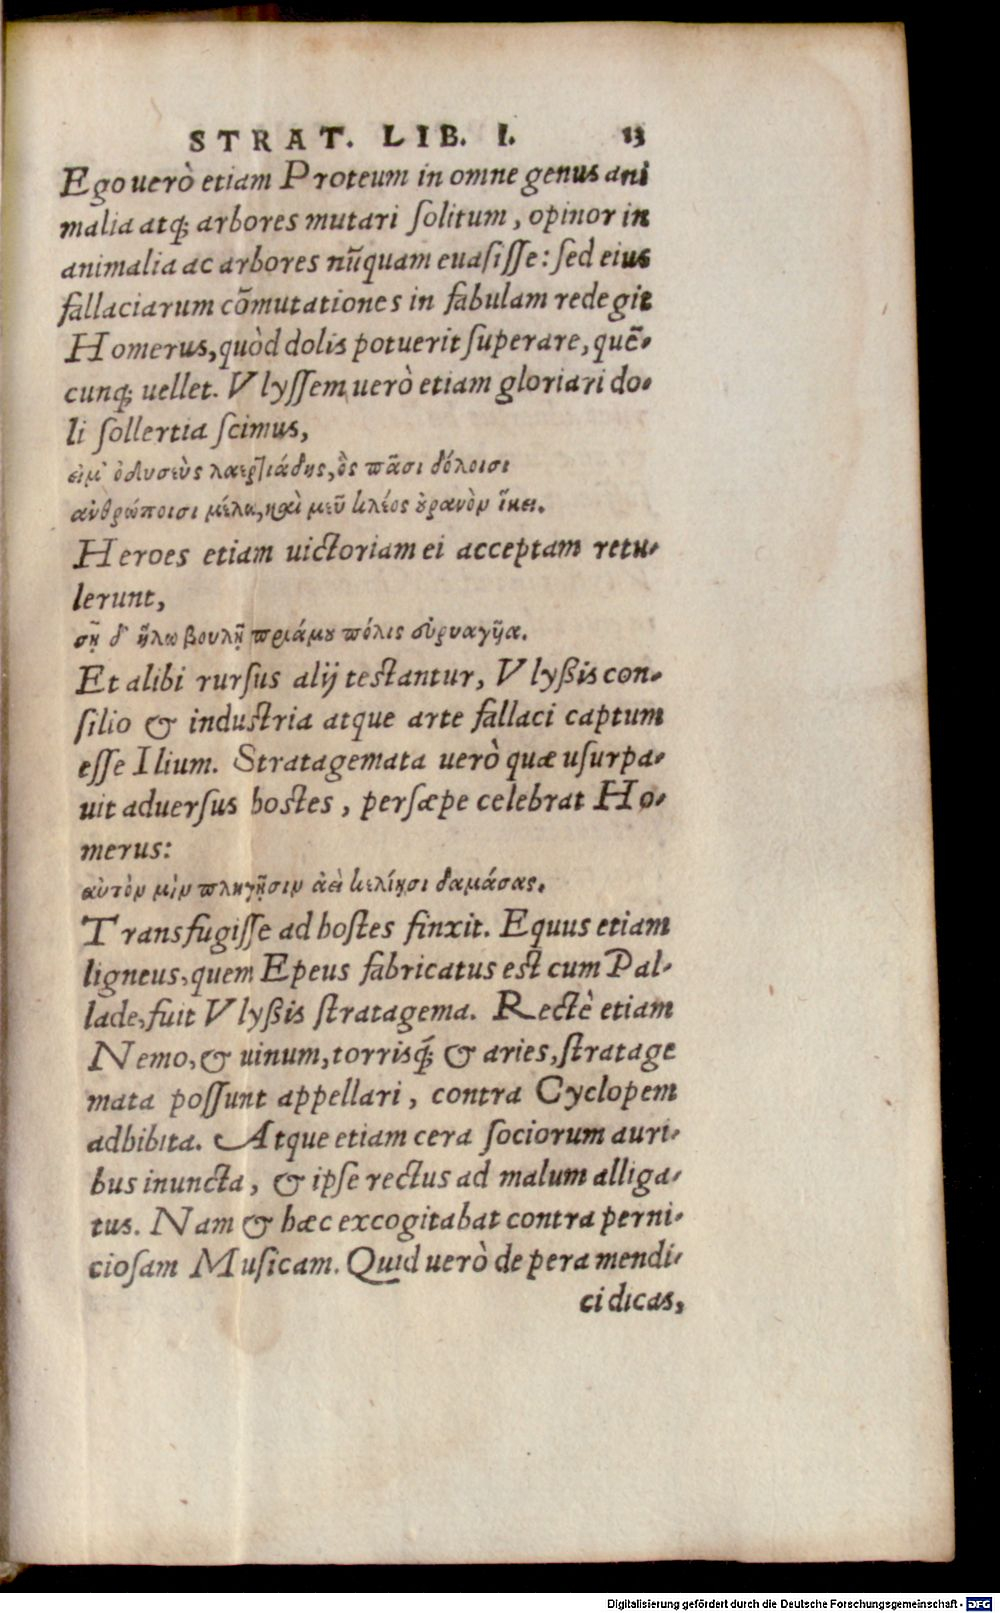 STRAT. LIB. I. 13
Ego uerò etiam Proteum in omne genus ani
malia atq; arbores mutari ſolitum, opinor in
animalia ac arbores nũquam euaſiſſe: ſed eius
fallaciarum cõmutationes in fabulam redegit
Homerus, quòd dolis potuerit ſuperare, quẽ-
cunq; uellet. Vlyſſem uerò etiam gloriari do-
li ſollertia ſcimus,
εἰμ᾽ ὀδυσεὺς λαερτιάδης, ὃς πᾶσι δόλοισι
ἀνθρώποισι μέλω, καὶ μεῦ κλέος οὐρανὸν ἵκει.
Heroes etiam uictoriam ei acceptam retu-
lerunt,
σῇ δ᾽ ἥλω βουλῇ πριάμου πόλις εὐρυαγῆα.
Et alibi rurſus alij teſtantur, Vlyßis con-
ſilio & induſtria atque arte fallaci captum
eſſe Ilium. Stratagemata uerò quæ uſurpa-
uit aduerſus hoſtes, perſæpe celebrat Ho-
merus:
αὐτὸν μὶν πληγῇσιν ἀεὶ κελίῃσι δαμάσας.
Transfugiſſe ad hoſtes finxit. Equus etiam
ligneus, quem Epeus fabricatus eſt cum Pal-
lade, fuit Vlyßis ſtratagema. Rectè etiam
Nemo, & uinum, torrisq́; & aries, ſtratage
mata poſſunt appellari, contra Cyclopem
adbibita. Atque etiam cera ſociorum auri-
bus inuncta, & ipſe rectus ad malum alliga-
tus. Nam & hæc excogitabat contra perni-
cioſam Muſicam. Quid uerò de pera mendi-
ci dicas,
Digitalisierung gefördert durch die Deutsche Forschungsgemeinschaft - DFG